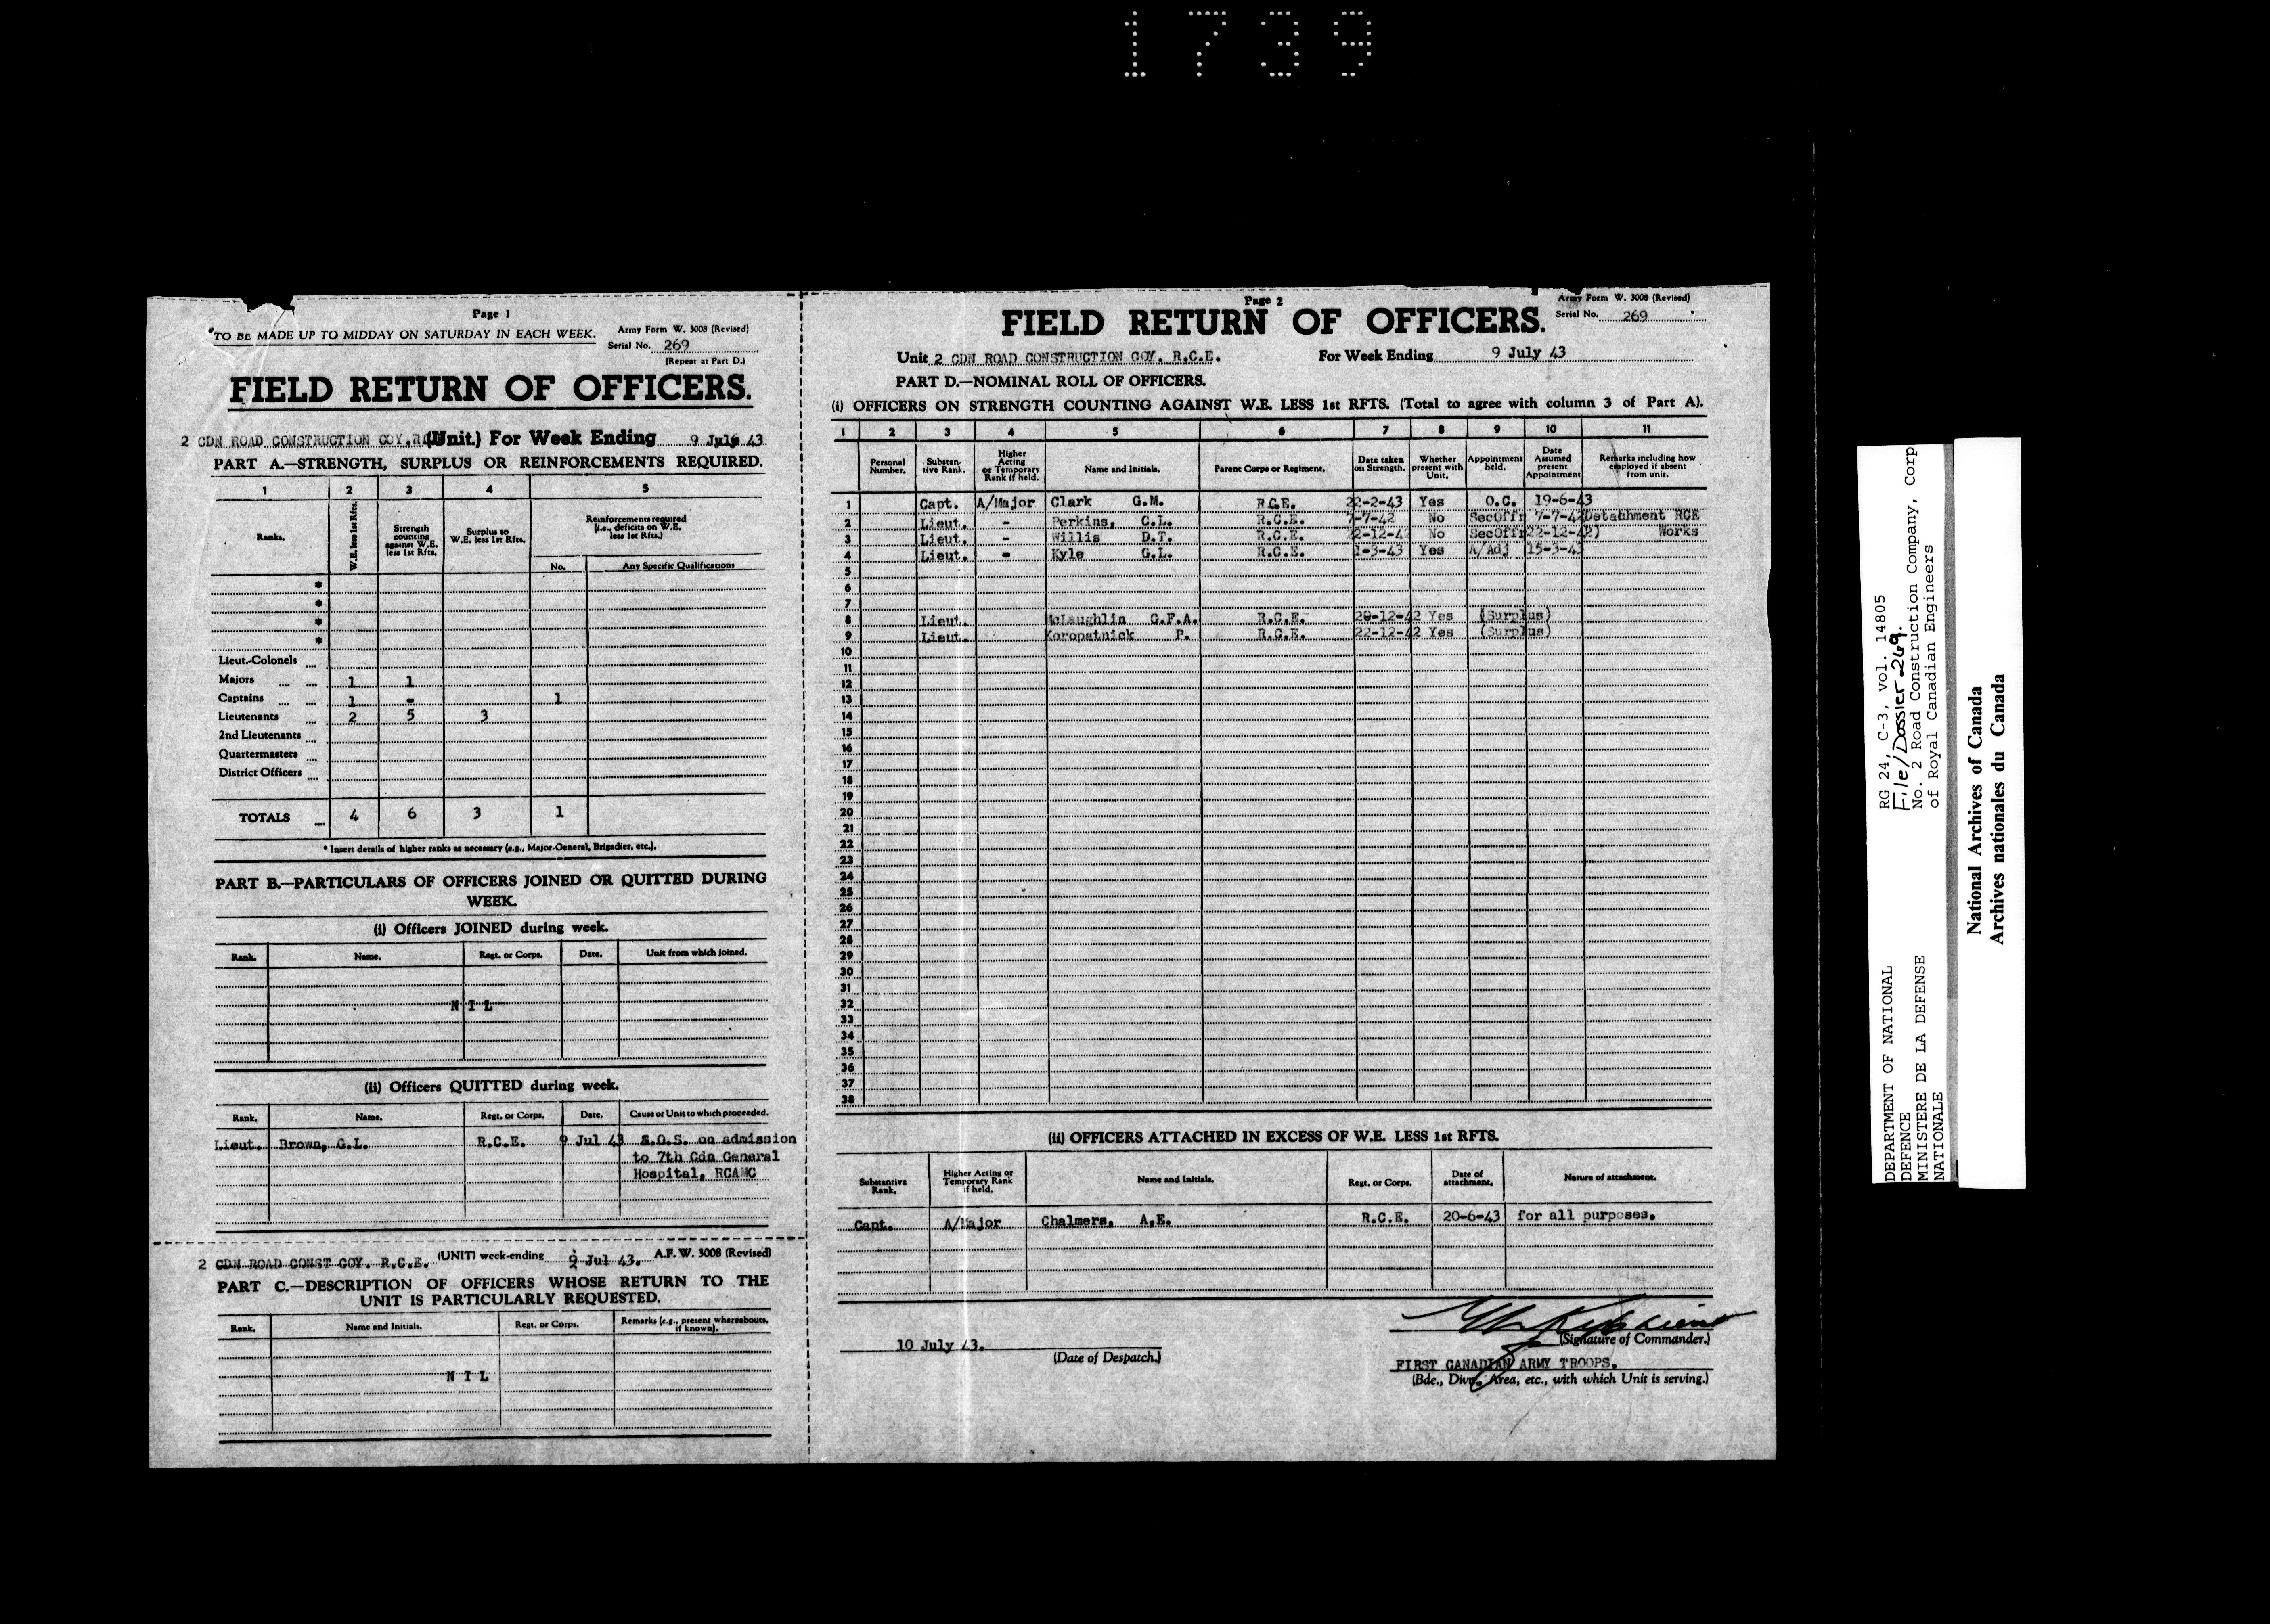 1739
Page 1
*TO BE MADE UP TO MIDDAY ON SATURDAY IN EACH WEEK.
Army Form W. 3008 (Revised)
Serial No. 269
(Repeat at Part D.)
FIELD RETURN OF OFFICERS.
2 CDN ROAD CONSTRUCTION COY. (Unit.) For Week Ending 9 July 43
PART A.—STRENGTH, SURPLUS OR REINFORCEMENTS REQUIRED.
1 2 3 4 5
Ranks. W.E. less 1st Rfts. Strength counting against W.E. less 1st Rfts. Surplus to W.E. less 1st Rfts. Reinforcements required (i.e., deficits on W.E. less 1st Rfts.)
No. Any Specific Qualifications
*
*
*
*
Lieut.-Colonels ....
Majors .... .... 1 1
Captains .... .... 1 - 1
Lieutenants .... 2 5 3
2nd Lieutenants ....
Quartermasters ....
District Officers ....
TOTALS .... 4 6 3 1
* Insert details of higher ranks as necessary (e.g., Major-General, Brigadier, etc.).
PART B.—PARTICULARS OF OFFICERS JOINED OR QUITTED DURING
WEEK.
(i) Officers JOINED during week.
Rank. Name. Regt. or Corps. Date. Unit from which joined.
N I L
(ii) Officers QUITTED during week.
Rank. Name. Regt. or Corps. Date. Cause or Unit to which proceeded.
Lieut. Brown, G.L. R.C.E. 9 Jul 43 S.O.S. on admission
to 7th Cdn General
Hospital, RCAMC
2 CDN ROAD CONST COY. R.C.E. (UNIT) week-ending 9 Jul 43. A.F. W. 3008 (Revised)
PART C.—DESCRIPTION OF OFFICERS WHOSE RETURN TO THE
UNIT IS PARTICULARLY REQUESTED.
Rank. Name and Initials. Regt. or Corps. Remarks (e.g., present whereabouts, if known).
N I L
Page 2
Army Form W. 3008 (Revised)
Serial No. 269
FIELD RETURN OF OFFICERS.
Unit 2 CDN ROAD CONSTRUCTION COY. R.C.E. For Week Ending 9 July 43
PART D.—NOMINAL ROLL OF OFFICERS.
(i) OFFICERS ON STRENGTH COUNTING AGAINST W.E. LESS 1st RFTS. (Total to agree with column 3 of Part A).
1 2 3 4 5 6 7 8 9 10 11
Personal Number. Substantive Rank. Higher Acting or Temporary Rank if held. Name and Initials. Parent Corps or Regiment. Date taken on Strength. Whether present with Unit. Appointment held. Date Assumed present Appointment Remarks including how employed if absent from unit.
1 Capt. A/Major Clark G.M. R.C.E. 22-2-43 Yes O.C. 19-6-43
2 Lieut. - Perkins, C.L. R.C.E. 7-7-42 No SecOffr 7-7-42 Detachment RCE
3 Lieut. - Willis D.T. R.C.E. 22-12-42 No SecOffr 22-12-42) Works
4 Lieut. - Kyle G.L. R.C.E. 1-3-43 Yes A/Adj 15-3-43
5
6
7
8 Lieut. McLaughlin G.F.A. R.C.E. 20-12-42 Yes (Surplus)
9 Lieut. Koropatnick P. R.C.E. 22-12-42 Yes (Surplus)
10
11
12
13
14
15
16
17
18
19
20
21
22
23
24
25
26
27
28
29
30
31
32
33
34
35
36
37
38
(ii) OFFICERS ATTACHED IN EXCESS OF W.E. LESS 1st RFTS.
Substantive Rank. Higher Acting or Temporary Rank if held. Name and Initials. Regt. or Corps. Date of attachment. Nature of attachment.
Capt. A/Major Chalmers, A.E. R.C.E. 20-6-43 for all purposes.
(Signature of Commander.)
10 July 43.
(Date of Despatch.)
FIRST CANADIAN ARMY TROOPS.
(Bde., Divn., Area, etc., with which Unit is serving.)
DEPARTMENT OF NATIONAL
DEFENCE
MINISTERE DE LA DEFENSE
NATIONALE
RG 24, C-3, vol. 14805
File/Dossier 269.
No. 2 Road Construction Company, Corp
of Royal Canadian Engineers
National Archives of Canada
Archives nationales du Canada